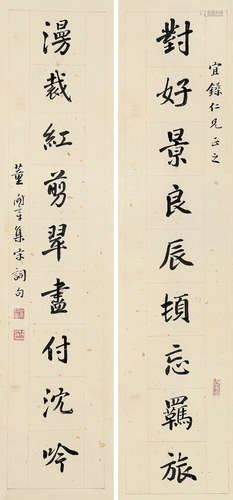 宜録仁兄正之
對好景良辰頓忘羈旅
漫裁紅剪翠盡付沈吟
董開章集宋詞句